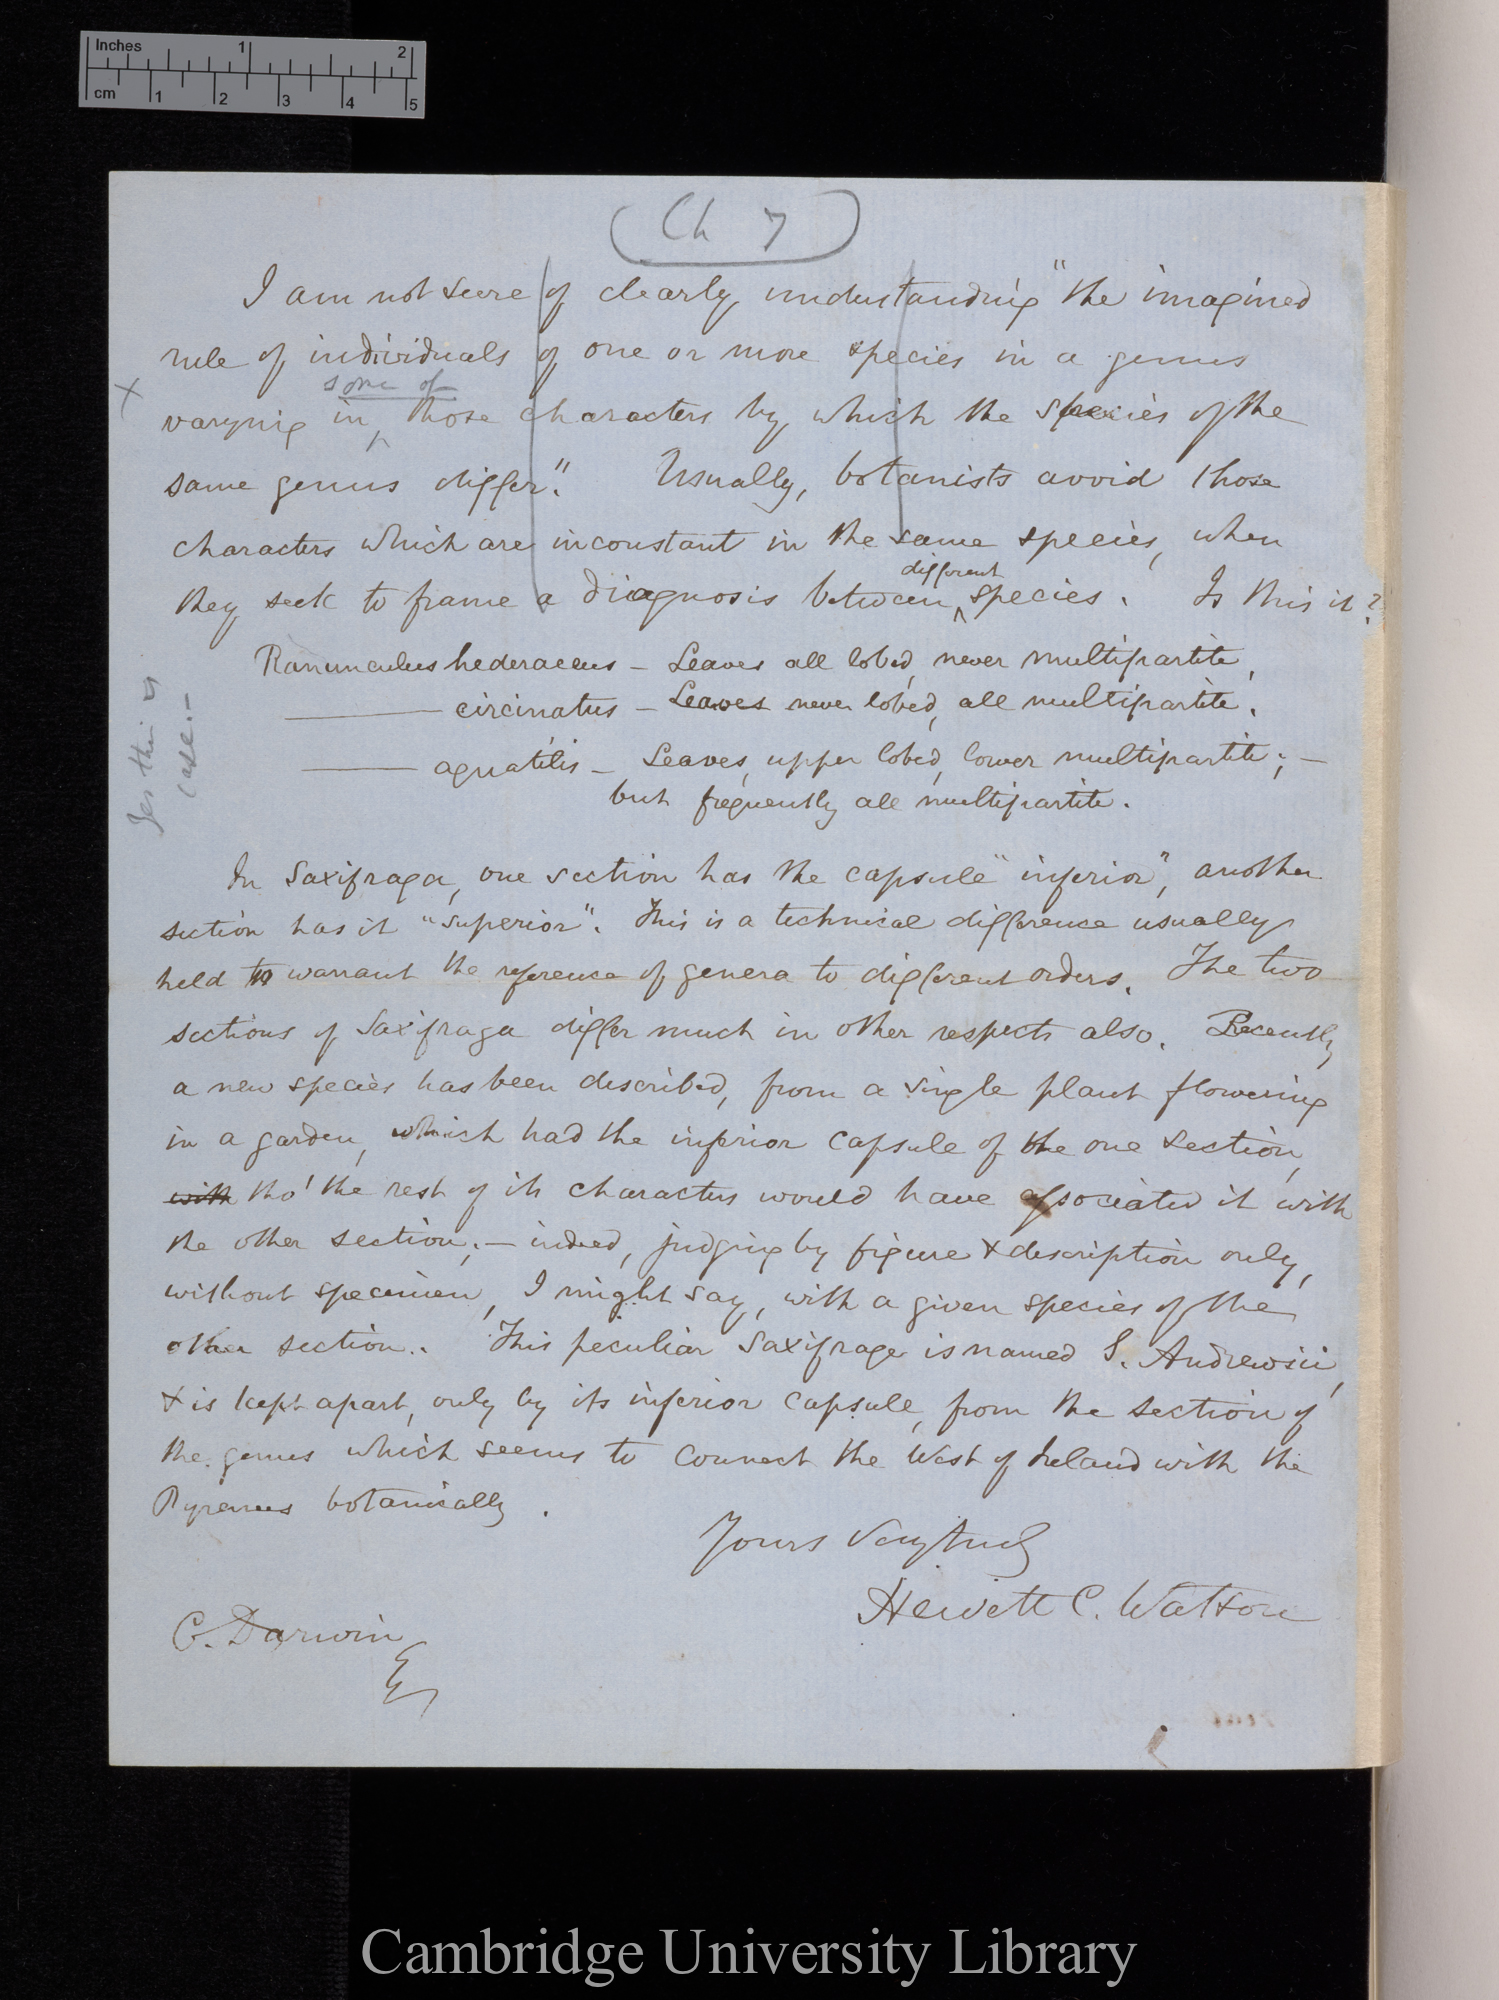 Inches 1 2
cm 1 2 3 4 5
Ch 7
I am not sure of clearly understanding "the imagined
rule of individuals of one or more species in a genus
some of
x varying in ^ those characters by which the species of the
same genus differ." Usually, botanists avoid those
characters which are inconstant in the same species, when
different
they seek to frame a diagnosis between ^ species. Is this it?
Ranunculus hederaceus — Leaves all lobed, never multipartite,
——— circinatus — Leaves never lobed, all multipartite.
——— aquatilis — Leaves, upper lobed, lower multipartite; —
but frequently all multipartite.
Yes this is
case.—
In Saxifraga, one section has the capsule "inferior", another
section has it "superior". This is a technical difference usually
held to warrant the reference of genera to different orders. The two
sections of Saxifraga differ much in other respects also. Recently,
a new species has been described, from a single plant flowering
in a garden, which had the inferior capsule of the one section,
with tho' the rest of its characters would have associated it with
the other section; — indeed, judging by figure & description only,
without specimen, I might say, with a given species of the
other section. This peculiar Saxifrage is named S. Andrewsii,
& is kept apart, only by its inferior capsule, from the section of
the genus which seems to connect the West of Ireland with the
Pyrenees botanically.
Yours very truly
Hewett C. Watson
C. Darwin
Esq
Cambridge University Library